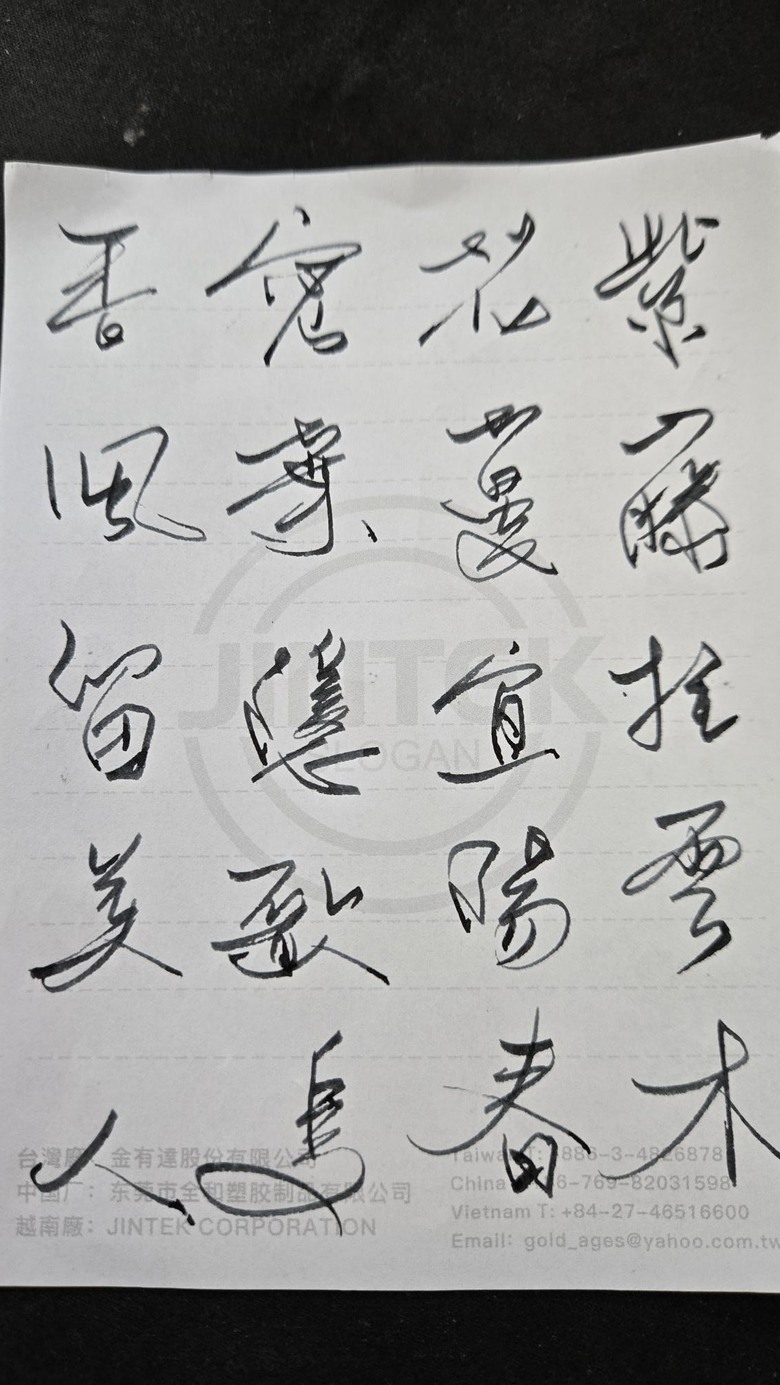 紫藤挂雲木
花蔓宜陽春
密葉隱歌鳥
香風留美人
JINTEK
SLOGAN
台灣廠：金有達股份有限公司
中国厂：东莞市全和塑胶制品有限公司
越南廠：JINTEK CORPORATION
Taiwan T:
China
Vietnam T: +84-27-46516600
Email: gold_ages@yahoo.com.tw